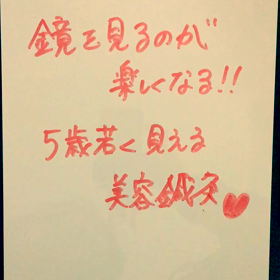 鏡を見るのが
楽しくなる!!
5歳若く見える
美容鍼灸